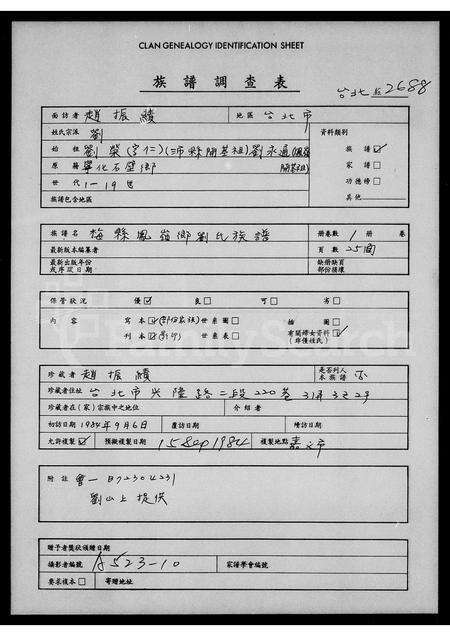 CLAN GENEALOGY IDENTIFICATION SHEET
族譜調查表
台北縣2688
面訪者 趙振績 地區 台北市
姓氏宗派 劉 資料類別
始祖 劉榮(字仁)(沛縣開基祖)劉永通(鳳嶺開基祖) 族譜☑
原籍 寧化石壁鄉 家譜□
世代 1-19世 功德榜□
族譜包含地區 其他
族譜名 梅縣鳳嶺鄉劉氏族譜 冊卷數 1 冊 卷
最新版本編纂者 頁數 25面
最新出版年份或序跋日期 缺冊缺頁部份損壞
保管狀況 優☑ 良□ 可□ 劣□
內容 寫本☑ 世系圖□ 插圖□
刊本☑(影印) 世系表□ 有關婦女資料☑(非僅姓氏)
珍藏者 趙振績 是否列入本族譜 否
珍藏者住址 台北市興隆路二段220巷31弄3之2号
珍藏者在(家)宗族中之地位 介紹者
初訪日期 1984年9月6日 覆訪日期 續訪日期
允許複製☑ 預擬複製日期 15 Sep 1984 複製地點 嘉義市
附註 會一B72304231
劉山上提供
贈予者獎狀頒贈日期
攝影者編號 A523-10 家譜學會編號
要菜複本□ 寄贈地址